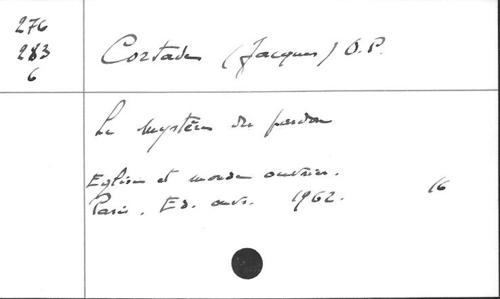 276
283
6
Cortade (Jacques) O.P.
Le mystère du pardon
Eglise et monde ouvrier.
Paris. Ed. ouvr. 1962. 16